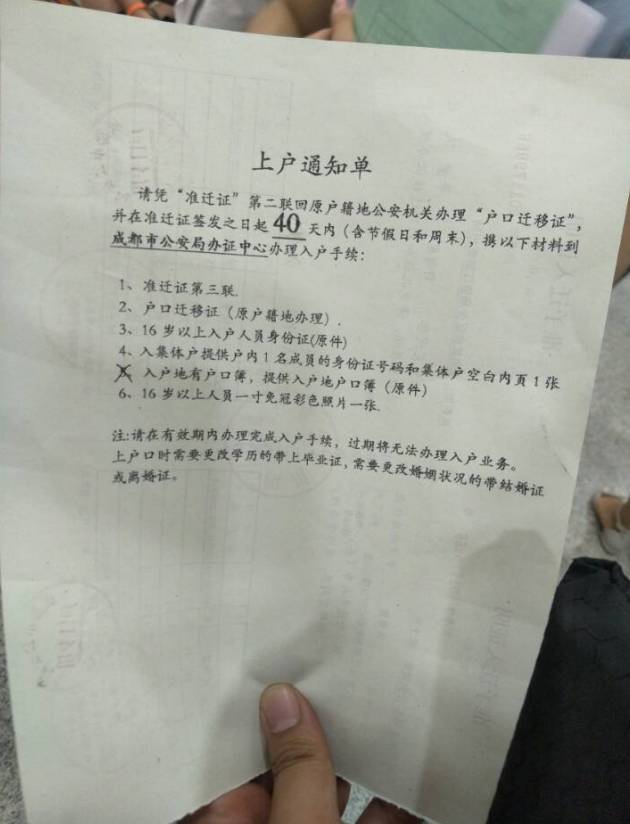 上户通知单
请凭“准迁证”第二联回原户籍地公安机关办理“户口迁移证”，
并在准迁证签发之日起 40 天内（含节假日和周末），携以下材料到
成都市公安局办证中心办理入户手续：
1、准迁证第三联.
2、户口迁移证（原户籍地办理）.
3、16岁以上入户人员身份证(原件)
4、入集体户提供户内1名成员的身份证号码和集体户空白内页1张
入户地有户口簿，提供入户地户口簿（原件）
6、16岁以上人员一寸免冠彩色照片一张.
注:请在有效期内办理完成入户手续，过期将无法办理入户业务。
上户口时需要更改学历的带上毕业证,需要更改婚姻状况的带结婚证
或离婚证。